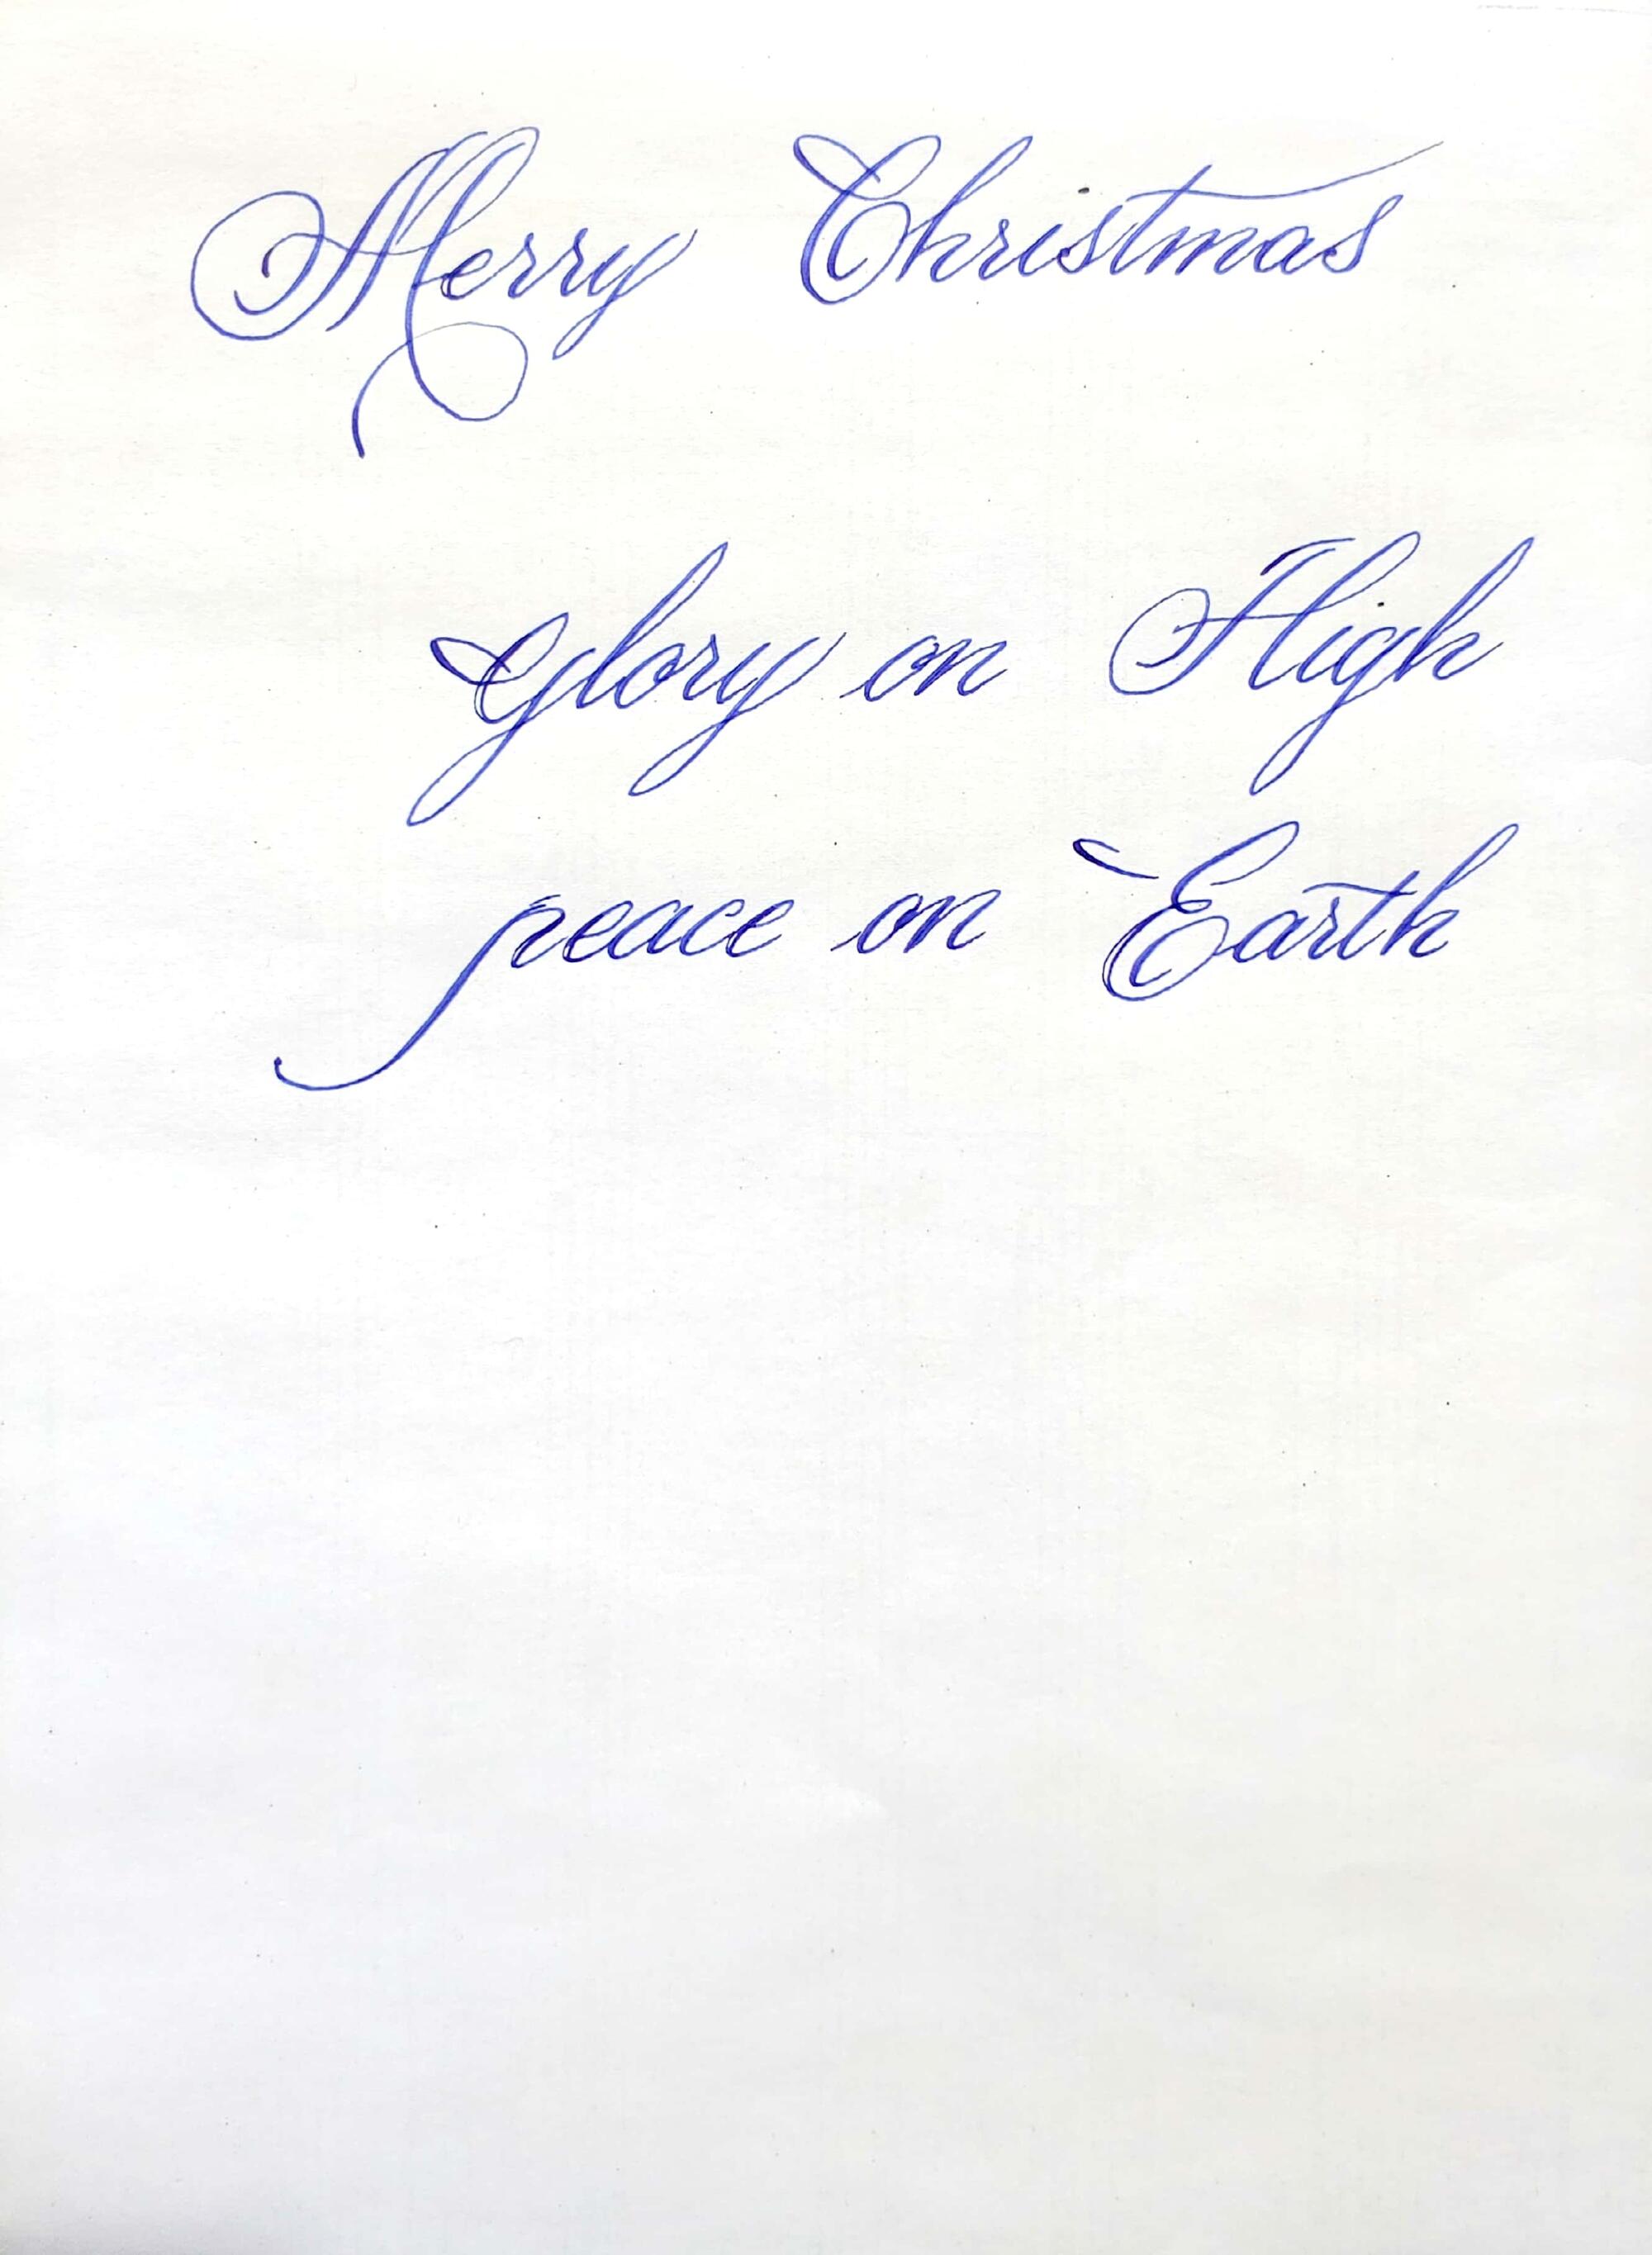 Merry Christmas
glory on High
peace on Earth